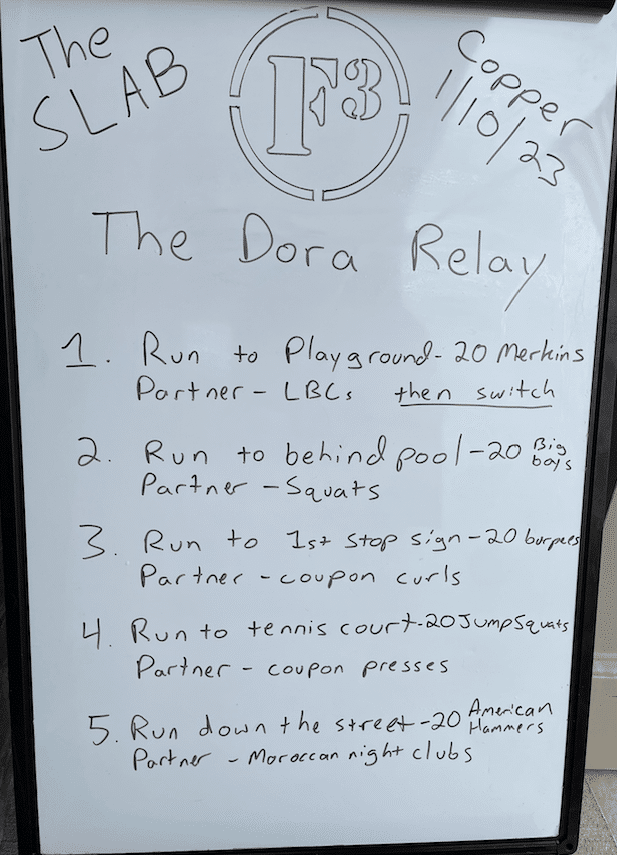 The
SLAB
F3
Copper
1/10/23
The Dora Relay
1. Run to Playground - 20 Merkins
Partner - LBCs then switch
2. Run to behind pool - 20 Big boys
Partner - Squats
3. Run to 1st stop sign - 20 burpees
Partner - coupon curls
4. Run to tennis court - 20 Jump Squats
Partner - coupon presses
5. Run down the street - 20 American Hammers
Partner - Moroccan night clubs